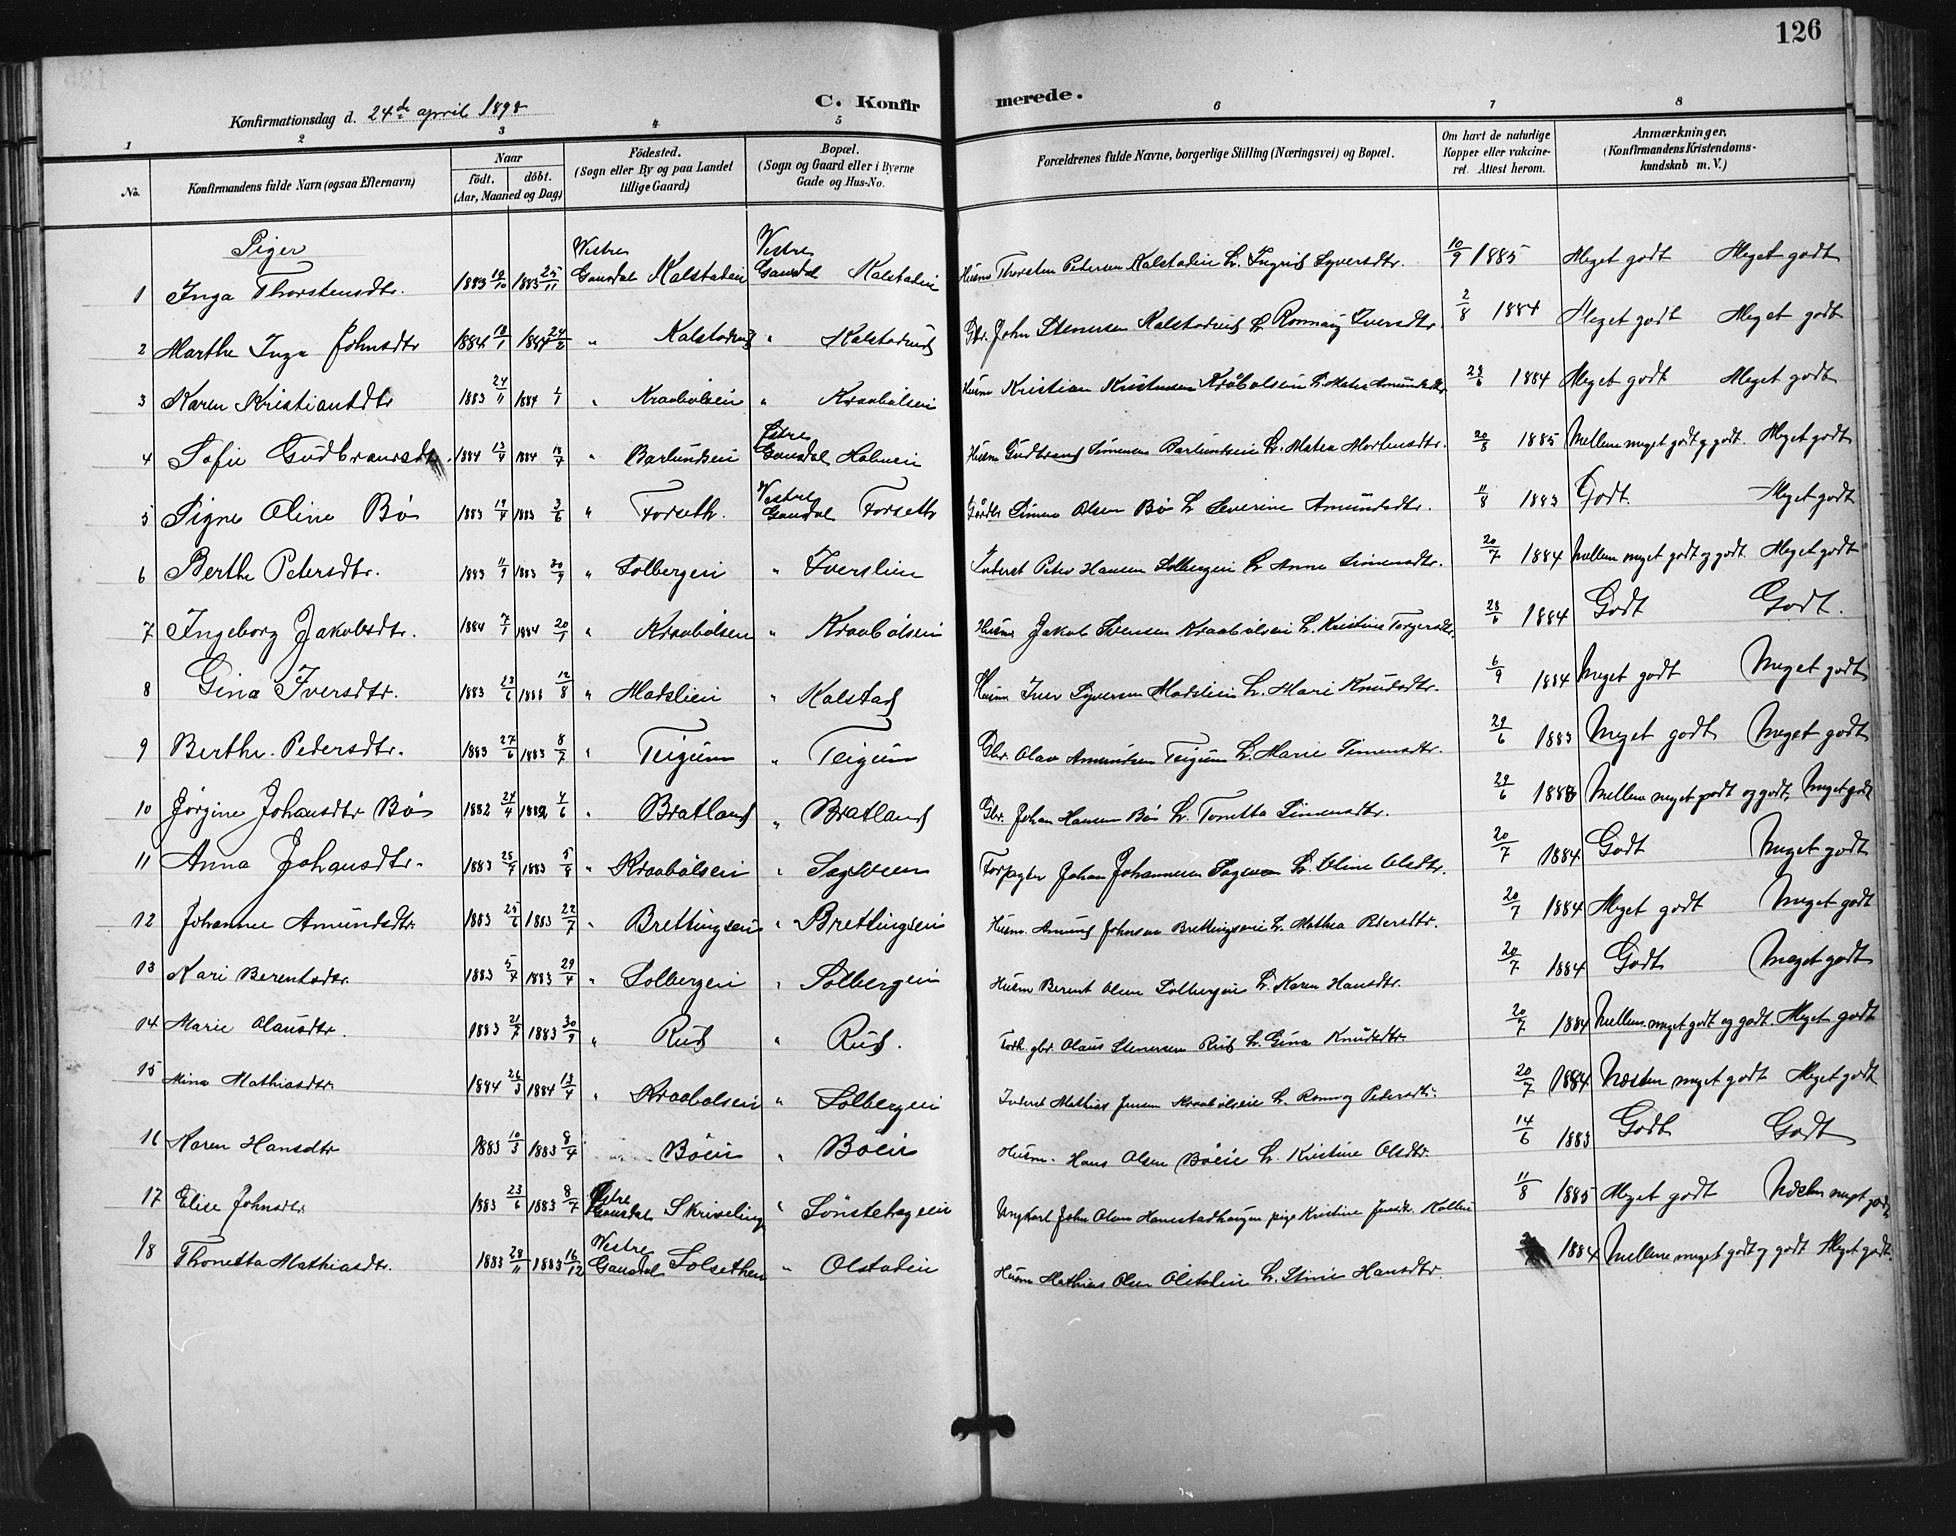 126
Konfirmationsdag d. 24de april 1898 C. Konfirmerede.
1 2 3 4 5 6 7 8
No. Konfirmandens fulde Navn (ogsaa Efternavn) Naar født. døbt. (Aar, Maaned og Dag) Fødested. (Sogn eller By og paa Landet tillige Gaard) Bopæl. (Sogn og Gaard eller i Byerne Gade og Hus-No. Forældrenes fulde Navne, borgerlige Stilling (Næringsvei) og Bopæl. Om havt de naturlige Kopper eller vaccineret. Attest herom. Anmærkninger, (Konfirmandens Kristendomskundskab m. V.)
Piger
1 Inga Thorstensdtr. 1883 19/10 1883 25/11 Vestre Gausdal Kalstadeie Vestre Gausdal Kalstadeie Husm Thorsten Petersen Kalstadeie h. Ingrid Syversdtr. 10/9 1885 Meget godt Meget godt
2 Marthe Inga Johnsdtr 1884 18/1 1884 24/2 " Kalstadrud " Kalstadrud Gbr. John Stenersen Kalstadrud h Ronnaug Iversdtr. 2/8 1884 Meget godt Meget godt
3 Karen Kristiansdtr 1883 24/11 1884 1/1 " Kraabølseie " Kraabølseie Husm Kristian Kristensen Kraabølseie h. Mathea Amundsdtr 28/6 1884 Meget godt Meget godt
4 Sofie Gudbransdtr. 1884 13/4 1884 18/7 " Barlundseie Østre Gausdal Holmeie Husm Gudbrand Simensen Barlundseie h. Matea Mortensdtr. 20/8 1885 Mellem meget godt og godt. Meget godt
5 Signe Oline Bø 1883 19/4 1883 3/6 " Forseth. Vestre Gausdal Forseth Simen Olsen Bø h Severine Amundsdtr. 11/8 1883 Godt. Meget godt
6 Berthe Petersdtr. 1883 11/9 1883 30/9 " Solbergeie " Iverslien Inderst Peter Hansen Solbergeie h Anne Simensdtr. 20/7 1884 Mellem meget godt og godt. Meget godt
7 Ingeborg Jakobsdtr. 1884 7/1 1884 20/1 " Kraabølseie " Kraabølseie Husm Jakob Svensen Kraabølseie h. Kristine Torgersdtr. 28/6 1884 Godt Godt.
8 Gina Iversdtr. 1883 23/6 1883 12/8 " Madslien " Kalstad Husm Iver Syversen Madslien h. Mari Knudsdtr. 6/9 1884 Meget godt Meget godt
9 Berthe Pedersdtr. 1883 27/6 1883 8/7 " Teigum " Teigum Gbr. Olav Amundsen Teigum h. Marie Simensdtr. 29/6 1883 Meget godt Meget godt
10 Jørgine Johansdtr Bø 1882 24/4 1882 4/6 " Bratland " Bratland Gbr. Johan Hansen Bø h. Tonetta Simensdtr. 29/6 1883 Mellem meget godt og godt, Meget godt
11 Anna Johansdtr. 1883 25/7 1883 5/8 " Kraabølseie " Sagveen Forpagter Johan Johannesen Sagveen h. Oline Olsdtr. 20/7 1884 Godt Meget godt
12 Johanne Amundsdtr 1883 25/6 1883 22/7 " Brettingseie " Brettingseie Husm. Amund Johnsen Brettingseie h. Mathea Pedersdtr. 20/7 1884 Meget godt Meget godt
13 Kari Berentsdtr. 1883 5/4 1883 29/4 " Solbergeie " Solbergeie Husm Berent Olsen Solbergeie h. Karen Hansdtr. 20/7 1884 Godt Meget godt
14 Marie Olausdtr. 1883 21/7 1883 30/9 " Rud " Rud. Forh. gbr. Olaus Stenersen Rud h. Gina Knudsdtr. 20/7 1884 Mellem meget godt og godt. Meget godt
15 Mina Mathiasdtr. 1884 26/3 1884 13/4 " Kraabølseie " Solbergeie Inderst Mathias Jensen Kraabølseie h. Ronnog Pedersdtr. 20/7 1884 Næsten meget godt Meget godt
16 Karen Hansdtr 1883 10/3 1883 8/4 Bøeie " Bøeie Husm. Hans Olsen Bøeie h. Kristine Olsdtr. 14/6 1883 Godt Godt
17 Elise Johnsdtr 1883 23/6 1883 8/7 Østre Gausdal Skriveling " Sønstehageeie Ungkarl John Olsen pige Kristine 11/8 1885 Meget godt Næsten meget godt
18 Thonetta Mathiasdtr. 1883 28/11 1883 16/12 Vestre Gausdal Solsethen " Olstadeie Husm Mathias Olsen Olstadeie h. Stine Hansdtr. 1884 Mellem meget godt og godt Meget godt.